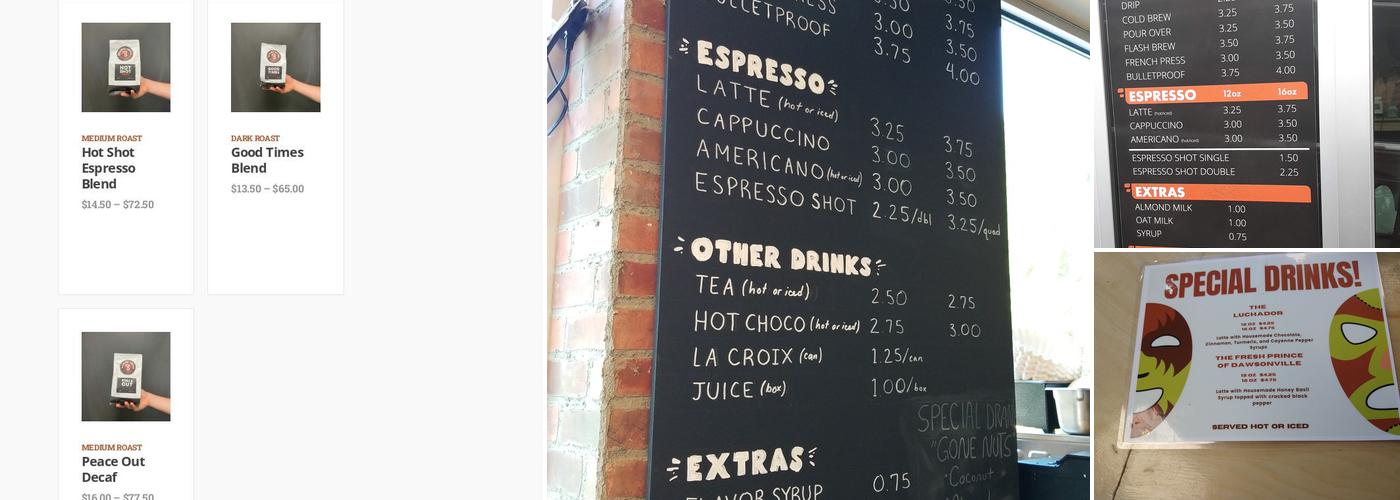 HOT SHOT
MEDIUM ROAST
Hot Shot
Espresso
Blend
$14.50 – $72.50
GOOD TIMES
DARK ROAST
Good Times
Blend
$13.50 – $65.00
MEDIUM ROAST
Peace Out
Decaf
$16.00 – $77.50
BULLETPROOF 3.75 4.00
ESPRESSO
LATTE (hot or iced) 3.25 3.75
CAPPUCCINO 3.00 3.50
AMERICANO (hot or iced) 3.00 3.50
ESPRESSO SHOT 2.25/dbl 3.25/quad
OTHER DRINKS
TEA (hot or iced) 2.50 2.75
HOT CHOCO (hot or iced) 2.75 3.00
LA CROIX (can) 1.25/can
JUICE (box) 1.00/box
SPECIAL
"GONE NUTS
Coconut
EXTRAS
FLAVOR SYRUP 0.75
DRIP
COLD BREW 3.25 3.75
POUR OVER 3.25 3.50
FLASH BREW 3.50 3.75
FRENCH PRESS 3.00 3.50
BULLETPROOF 3.75 4.00
ESPRESSO 12oz 16oz
LATTE (hot/iced) 3.25 3.75
CAPPUCCINO 3.00 3.50
AMERICANO (hot/iced) 3.00 3.50
ESPRESSO SHOT SINGLE 1.50
ESPRESSO SHOT DOUBLE 2.25
EXTRAS
ALMOND MILK 1.00
OAT MILK 1.00
SYRUP 0.75
SPECIAL DRINKS!
THE
LUCHADOR
12 OZ $4.25
16 OZ $4.75
Latte with Housemade Chocolate,
Cinnamon, Turmeric, and Cayenne Pepper
Syrups
THE FRESH PRINCE
OF DAWSONVILLE
12 OZ $4.25
16 OZ $4.75
Latte with Housemade Honey Basil
Syrup topped with cracked black
pepper
SERVED HOT OR ICED